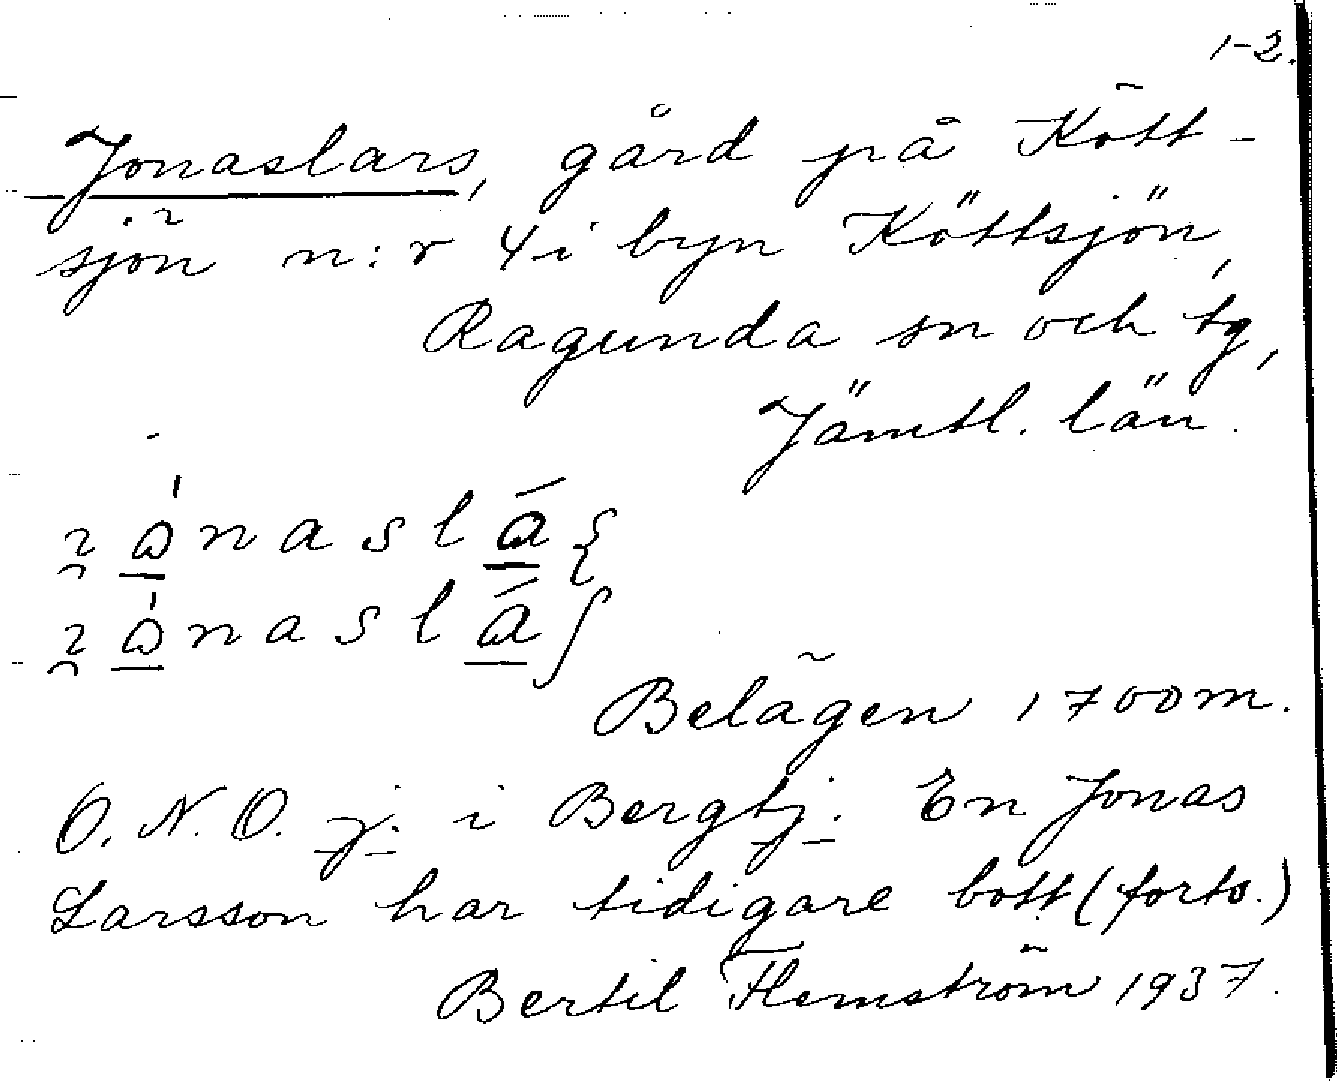 1-2.
Jonaslars, gård på Kött-
sjön n:r 4 i byn Köttsjön,
Ragunda sn och tg,
Jämtl. län.
Belägen 1700 m.
O.N.O. j. i Bergtj. En Jonas
Larsson har tidigare bott (forts.)
Bertil Flemström 1937.